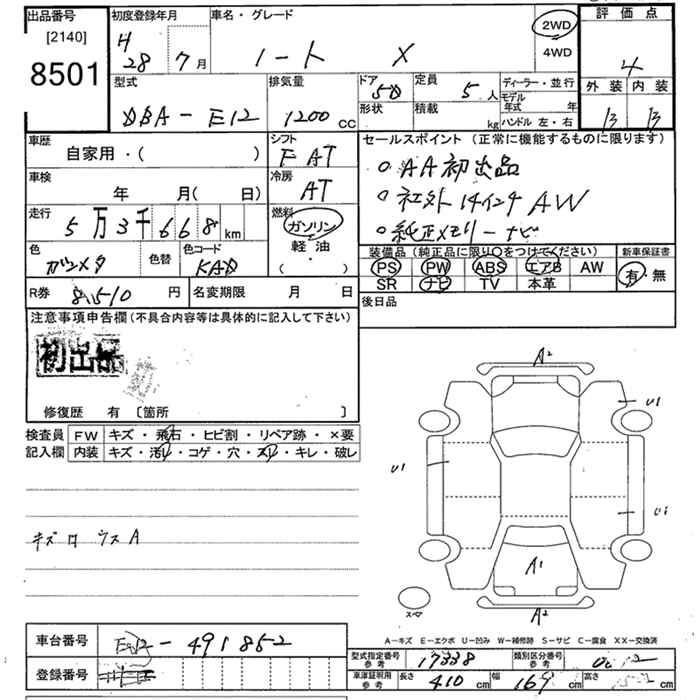 出品番号
[2140]
8501
初度登録年月
H
28 7月
車名・グレード
ノート X
2WD
4WD
評価点
4
外装 内装
B B
型式
DBA-E12
排気量
1200cc
ドア
5D
定員
5人
形状
積載
kg
ディーラー・並行
モデル年式 年
ハンドル 左・右
車歴
自家用・( )
シフト
F AT
車検
年 月( 日)
冷房
AT
走行
5万3千668km
燃料
ガソリン
軽油
( )
色
ガンメタ
色替
色コード
KAD
R券 8,510円
名変期限 月 日
セールスポイント(正常に機能するものに限ります)
○AA初出品
○社外14インチAW
○純正メモリーナビ
装備品(純品に限り○をつけてください)
PS PW ABS エアB AW
SR ナビ TV 本革
新車保証書
有・無
後日品
注意事項申告欄(不具合内容等は具体的に記入して下さい)
初出品
修復歴 有 [箇所 ]
検査員
記入欄
FW キズ・飛石・ヒビ割・リペア跡・×要
内装 キズ・汚レ・コゲ・穴・スレ・キレ・破レ
キズ ロ ウス A
A2
U1
U1
U1
A1
A2
スペア
A-キズ E-エクボ U-凹み W-補修跡 S-サビ C-腐食 XX-交換済
車台番号
E12-491852
登録番号
型式指定番号
参考
17338
類別区分番号
参考
車庫証明用
参考
長さ 410cm
幅 169cm
高さ cm